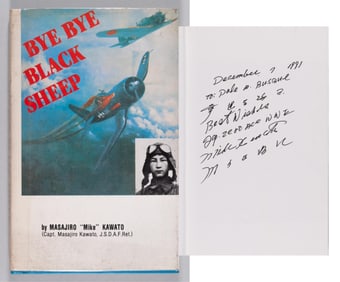 BYE BYE
BLACK
SHEEP
by MASAJIRO "Mike" KAWATO
(Capt. Masajiro Kawato, J.S.D.A.F. Ret.)
December 7, 1991
To: Dale
Best Wishes
ZERO ACE WW2